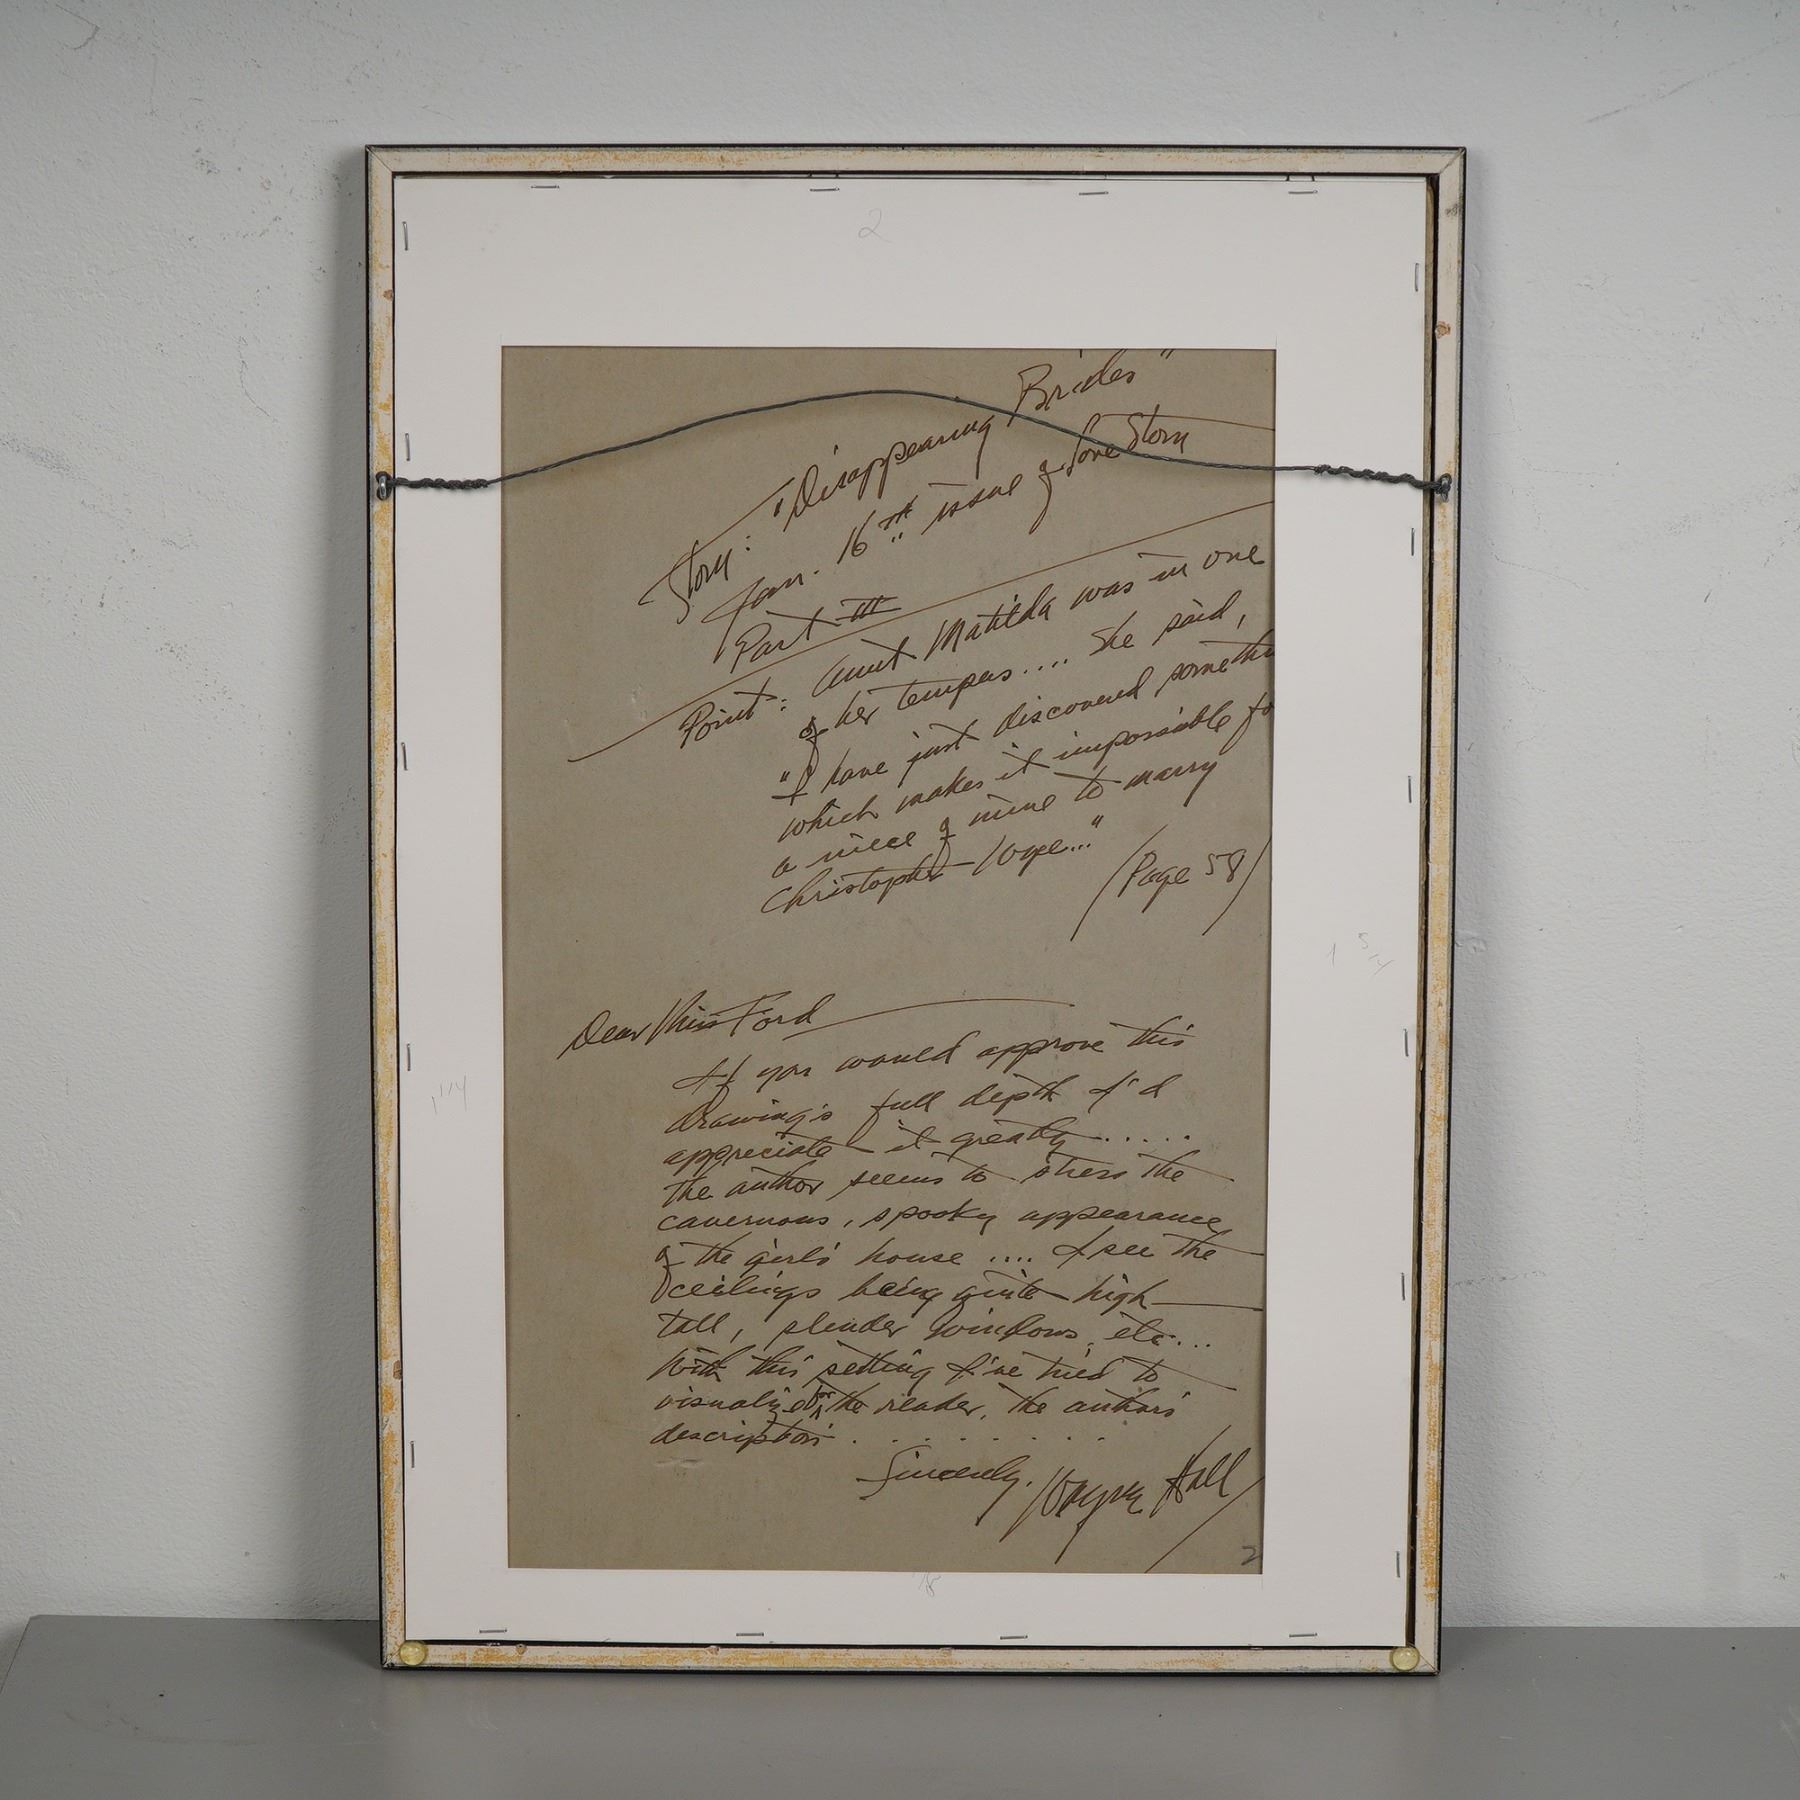 2
Story: "Disappearing Brides"
Jan. 16TH issue of Love Story
Part III
Point: Aunt Matilda was in one
of her tempers.... She said,
"I have just discovered somethi
which makes it impossible fo
a niece of mine to marry
Christopher
(Page 58)
Dear Miss Ford
If you would approve this
drawing's full depth I'd
appreciate it greatly.....
the author seems to stress the
cavernous, spooky appearance
of the girl's house .... I see the
ceilings being quite high
tall, slender windows, etc...
With this setting I've tried to
visualize for the reader, the author's
description . . . . . . . .
Sincerely,
Wayne Hall
2
1 1/4